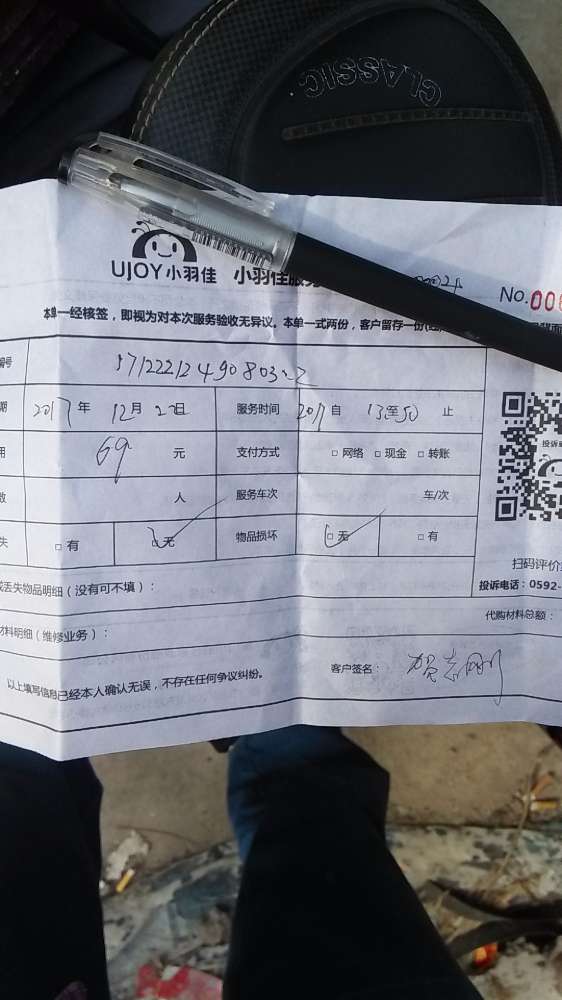 CLASSIC
UJOY小羽佳 小羽佳服务
No.006
本单一经核签，即视为对本次服务验收无异议。本单一式两份，客户留存一份
编号
期 2017年 12月 22日 服务时间 自 13至50 止
用 69 元 支付方式 □网络 □现金 □转账
数 人 服务车次 车/次
失 □有 □无 物品损坏 □无 □有
扫码评价
投诉电话：0592-
或丢失物品明细（没有可不填）：
代购材料总额：
材料明细（维修业务）：
以上填写信息已经本人确认无误，不存在任何争议纠纷。 客户签名：